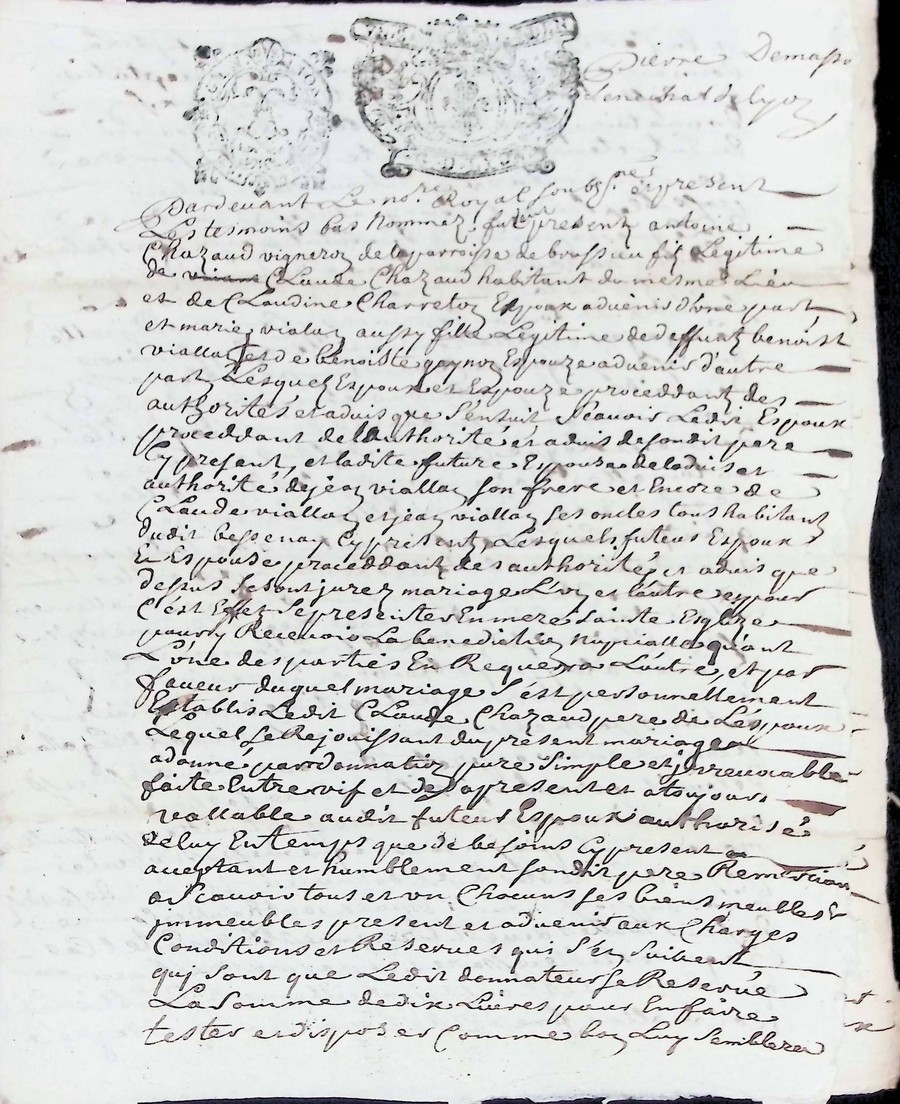 Pierre Demasso
Senechal de lyon
Pardevant Le no.re Royal soubs.nés et present
Les tesmoins bas nommez fut present antoine
Chazaud vigneron de la parroisse de brussieu fils Legitime
de Claude Chazaud habitant du mesme Lieu
et de Claudine Charreton Espoux advenir d'une part
et marie viallon aussy fille Legitime de deffunt benoist
viallon et de benoiste guynon Espouze advenir d'autre
part Lesquels Espoux et Espouze proceddant des
authorités et advis que s'ensuit scavoir Ledit Espoux
proceddant de Lauthorité et advis de sondit pere
Cy present, et ladite future Espouze de ladvis et
authorité de jean viallon son frere et Encore de
Claude viallon et jean viallon ses oncles tous habitant
dudit bessenay Cy present, Lesquels futeurs Espoux
Et Espouse proceddant des authorités et advis que
dessus se sont jurez mariage L'un et L'autre espouser
C'est Et se presenter En mere sainte Esglize
pour y Recevoir La benediction nuptialle quant
L'une des parties En Requerra L'autre, et par
faveur du quel mariage s'est personnellement
Establis Ledit Claude Chazaud pere de L'espoux
Lequel se Rejouissant du present mariage
a donne par donnation pure simple et jrrevocable
faite Entre vif et des apresent et a toujours
vallable audit futeur Espoux authorisé
de luy En temps que de besoins Cy present
acceptant et humblement sondit pere Remerciant
a scavoir tous et un Chacuns ses biens meubles &
jmmeubles present et advenir aux Charges
Conditions et Reserves qui s'En suivent
qui sont que Ledit donnateur se Reserve
La somme de dix Livres pour En faire
tester et disposer Comme bon Luy semblera